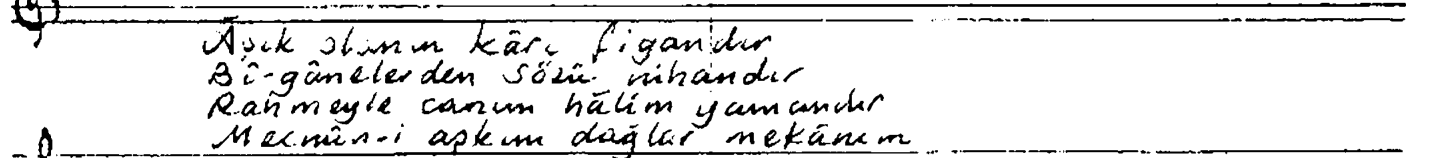 Âşık olanın kârı figandır
Bî-gânelerden sözü nihandır
Rahmeyle canım hâlim yamandır
Mecnûn-i aşkım dağlar mekânım